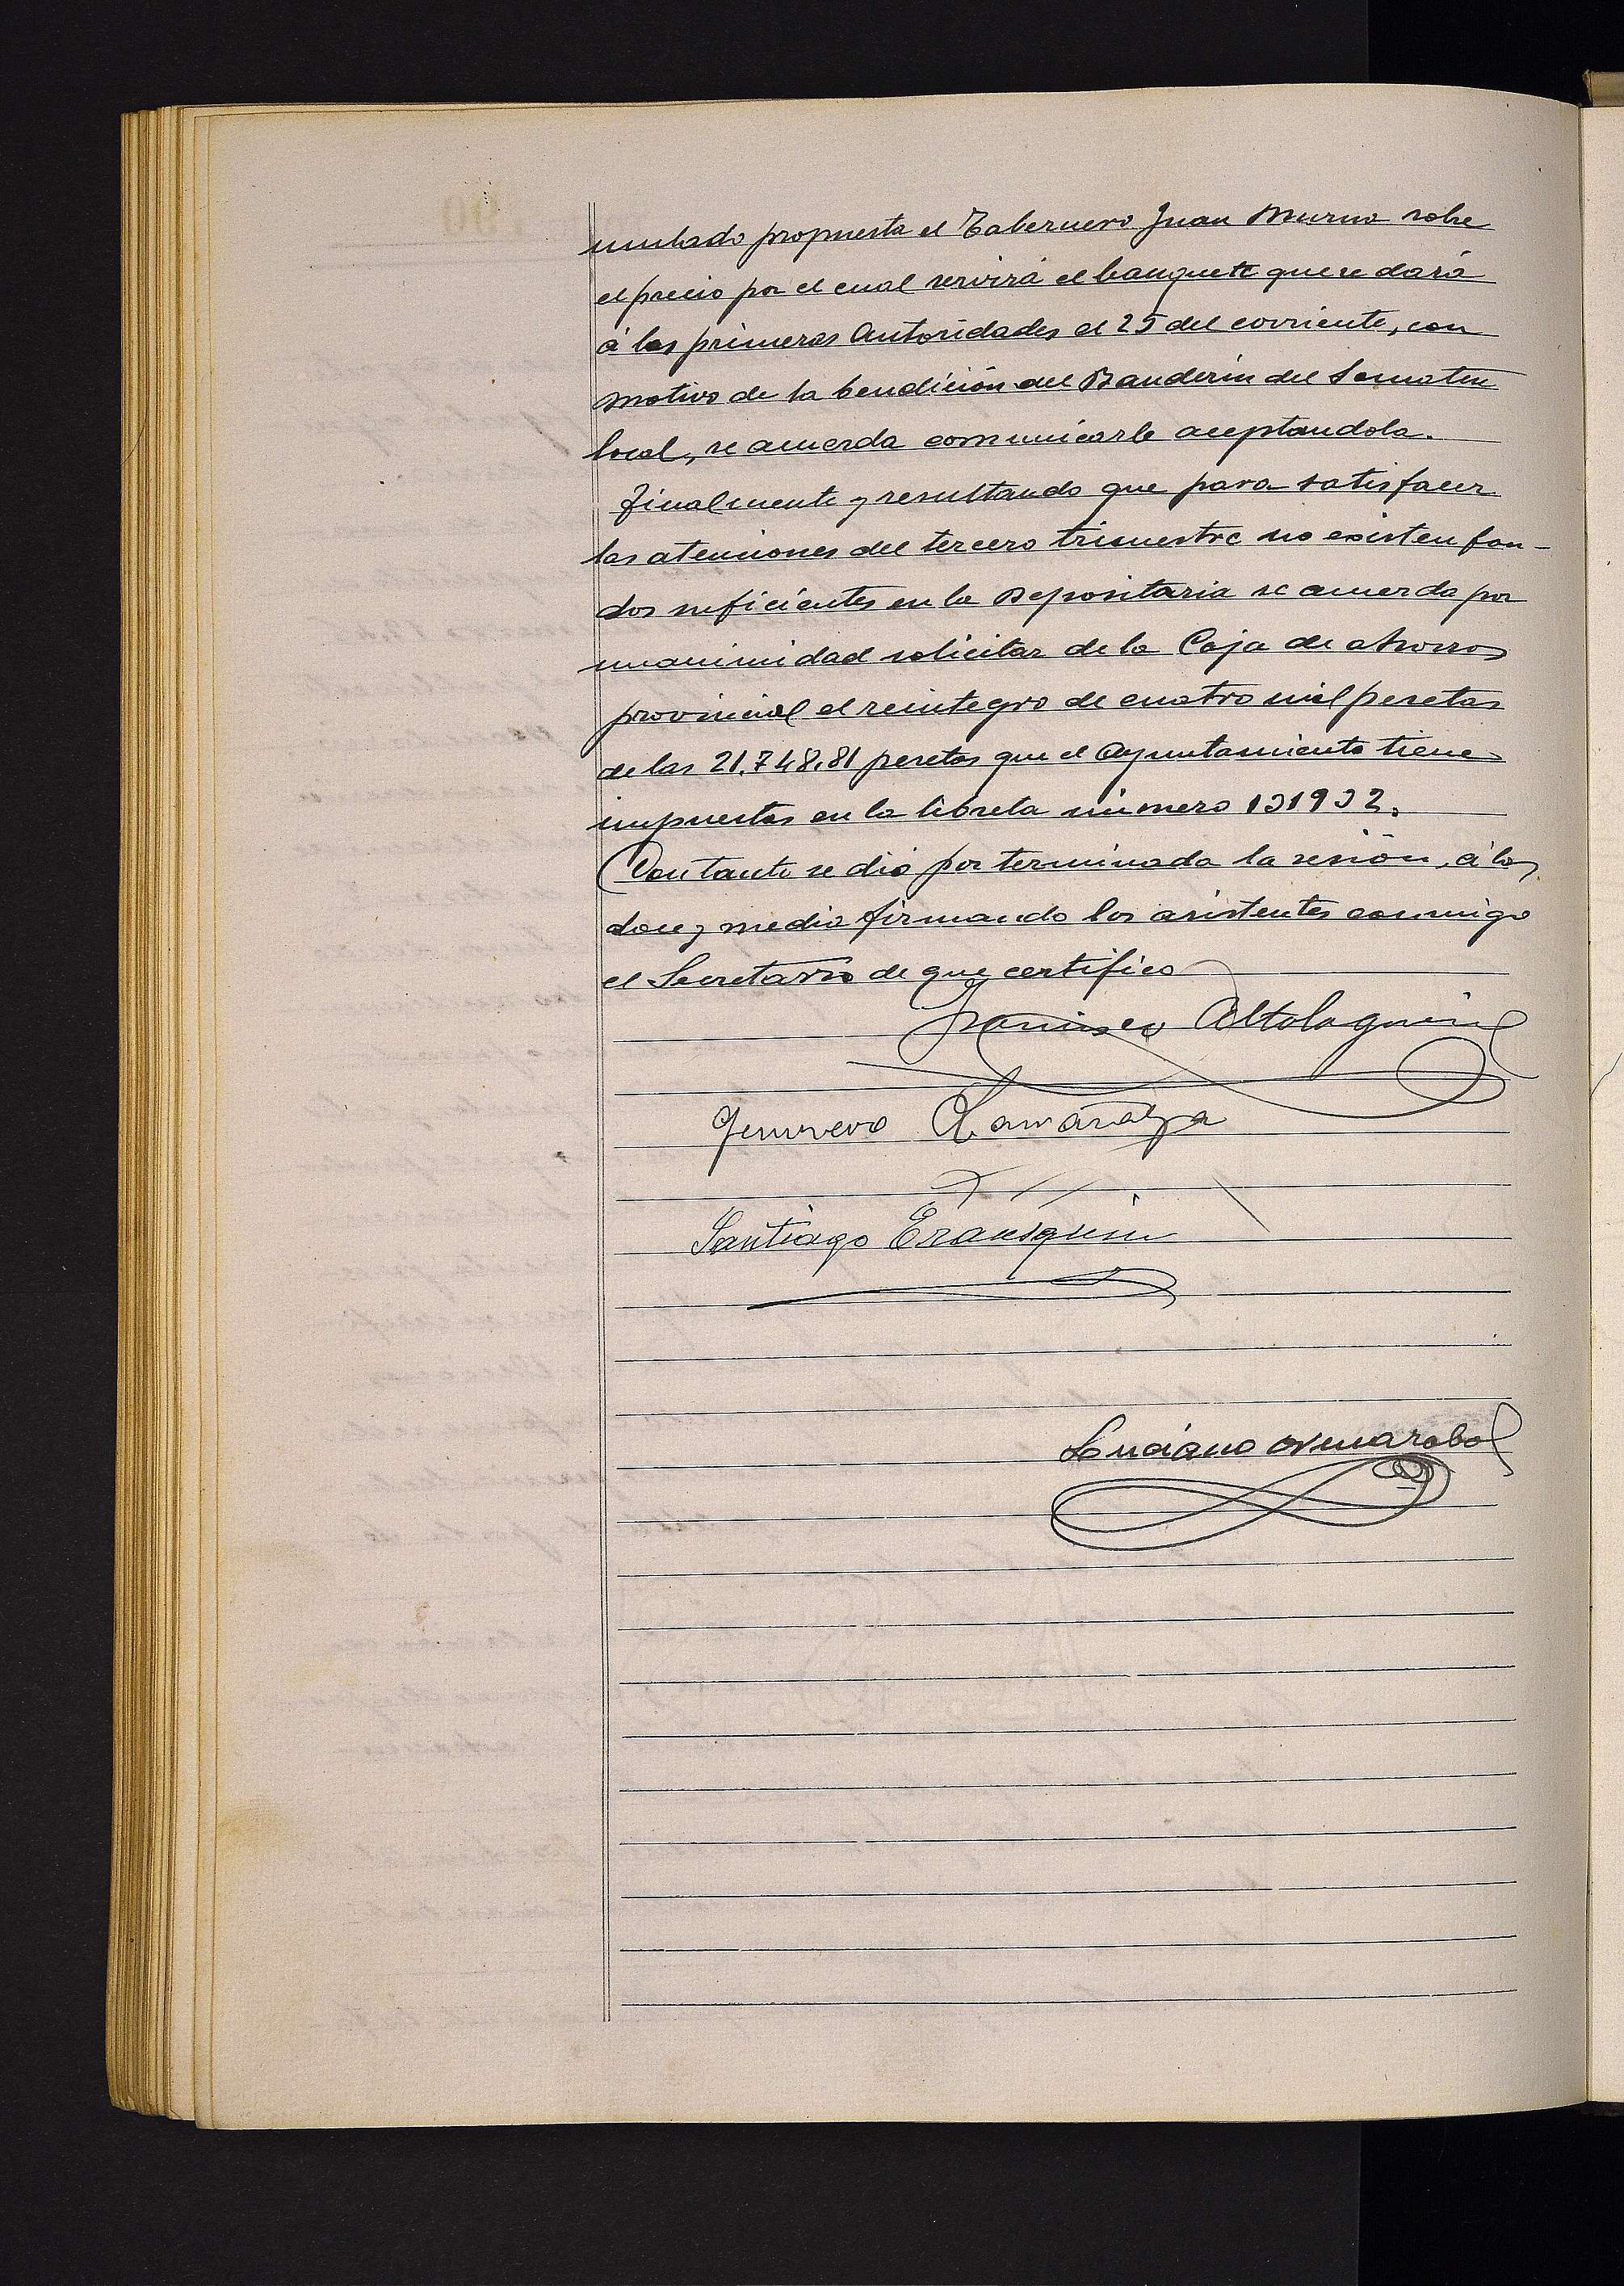 mulado propuesta el Tabernero Juan Murua sobre
el precio por el cual servirá el banquete que se dará
á las primeras Autoridades el 25 del corriente, con
motivo de la bendición del Banderin del Somaten
local, se acuerda comunicarle aceptandola.
Finalmente y resultando que para satisfacer
las atenciones del tercero trimestre no existen fon-
dos suficientes en la Depositaria se acuerda por
unanimidad solicitar de la Caja de ahorros
provincial el reintegro de cuatro mil pesetas
de las 21.748,81 pesetas que el Ayuntamiento tiene
impuestas en la libreta número 131932.
Con tanto se dió por terminada la sesión, á las
doce y media firmando los asistentes conmigo
el Secretario de que certifico
Francisco Altolaguirre
Santiago Erausquin
Luciano